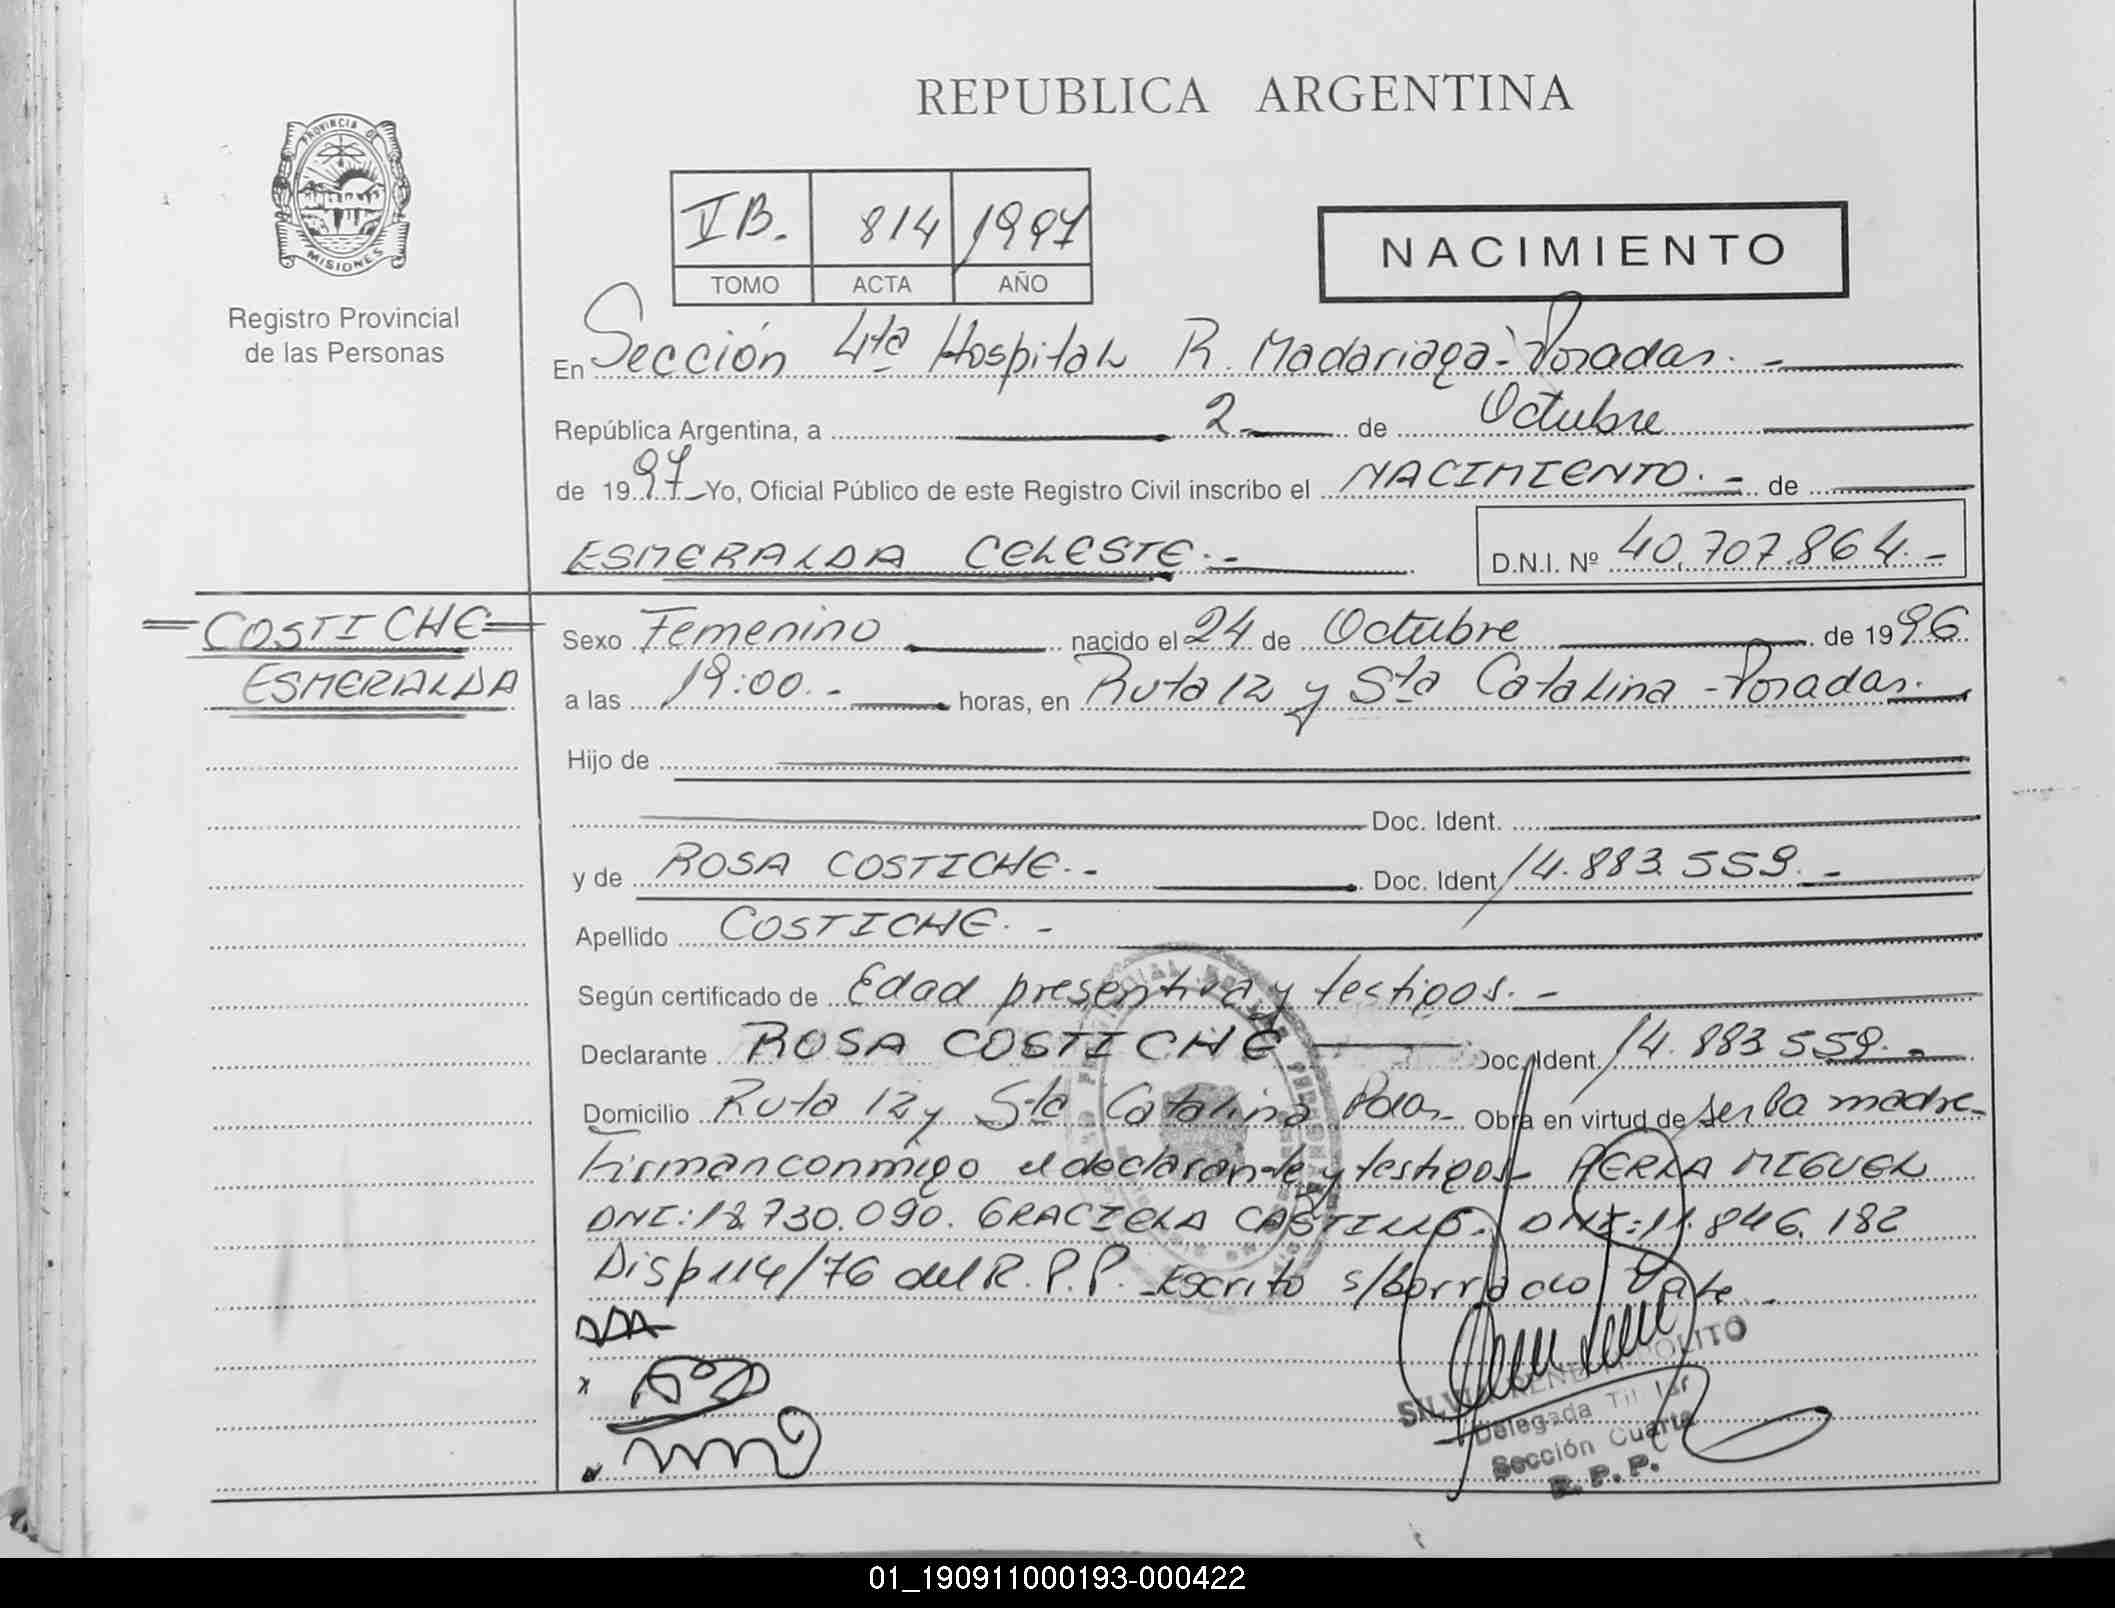 REPUBLICA ARGENTINA
PROVINCIA DE
MISIONES
Registro Provincial
de las Personas
VB. 814 1997
TOMO ACTA AÑO
NACIMIENTO
En Sección 4ta Hospital R. Madariaga - Posadas. -
República Argentina, a 2 de Octubre
de 1997 Yo, Oficial Público de este Registro Civil inscribo el NACIMIENTO. - de
ESMERALDA CELESTE. - D.N.I. Nº 40.707.864. -
=COSTICHE=
ESMERALDA
Sexo Femenino nacido el 24 de Octubre de 1996
a las 19:00. - horas, en Ruta 12 y Sta Catalina - Posadas.
Hijo de
Doc. Ident.
y de ROSA COSTICHE. - Doc. Ident. 14.883.559. -
Apellido COSTICHE. -
Según certificado de Edad presentiva y testigos. -
Declarante ROSA COSTICHE Doc. Ident. 14.883.559. -
Domicilio Ruta 12 y Sta Catalina Pdas - Obra en virtud de ser la madre -
Firman conmigo el declarante y testigos PERLA MIGUEL
DNI: 18.730.090. GRACIELA CASTILLO. DNI: 11.846.182
Disp 114/76 del R.P.P. - Escrito s/borrado Vale -
SILVIA RENE
Delegada Titular
Sección Cuarta
R. P. P.
01_190911000193-000422